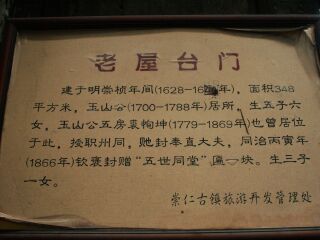 老屋台门
建于明崇桢年间(1628-16 年), 面积348
平方米, 玉山公(1700-1788年)居所, 生五子六
女, 玉山公五房裘 坤(1779-1869年)也曾居位
于此, 授职州同, 貤封奉直大夫, 同治丙寅年
(1866年)钦褒封赠"五世同堂"匾一块。生三子
一女。
崇仁古镇旅游开发管理处